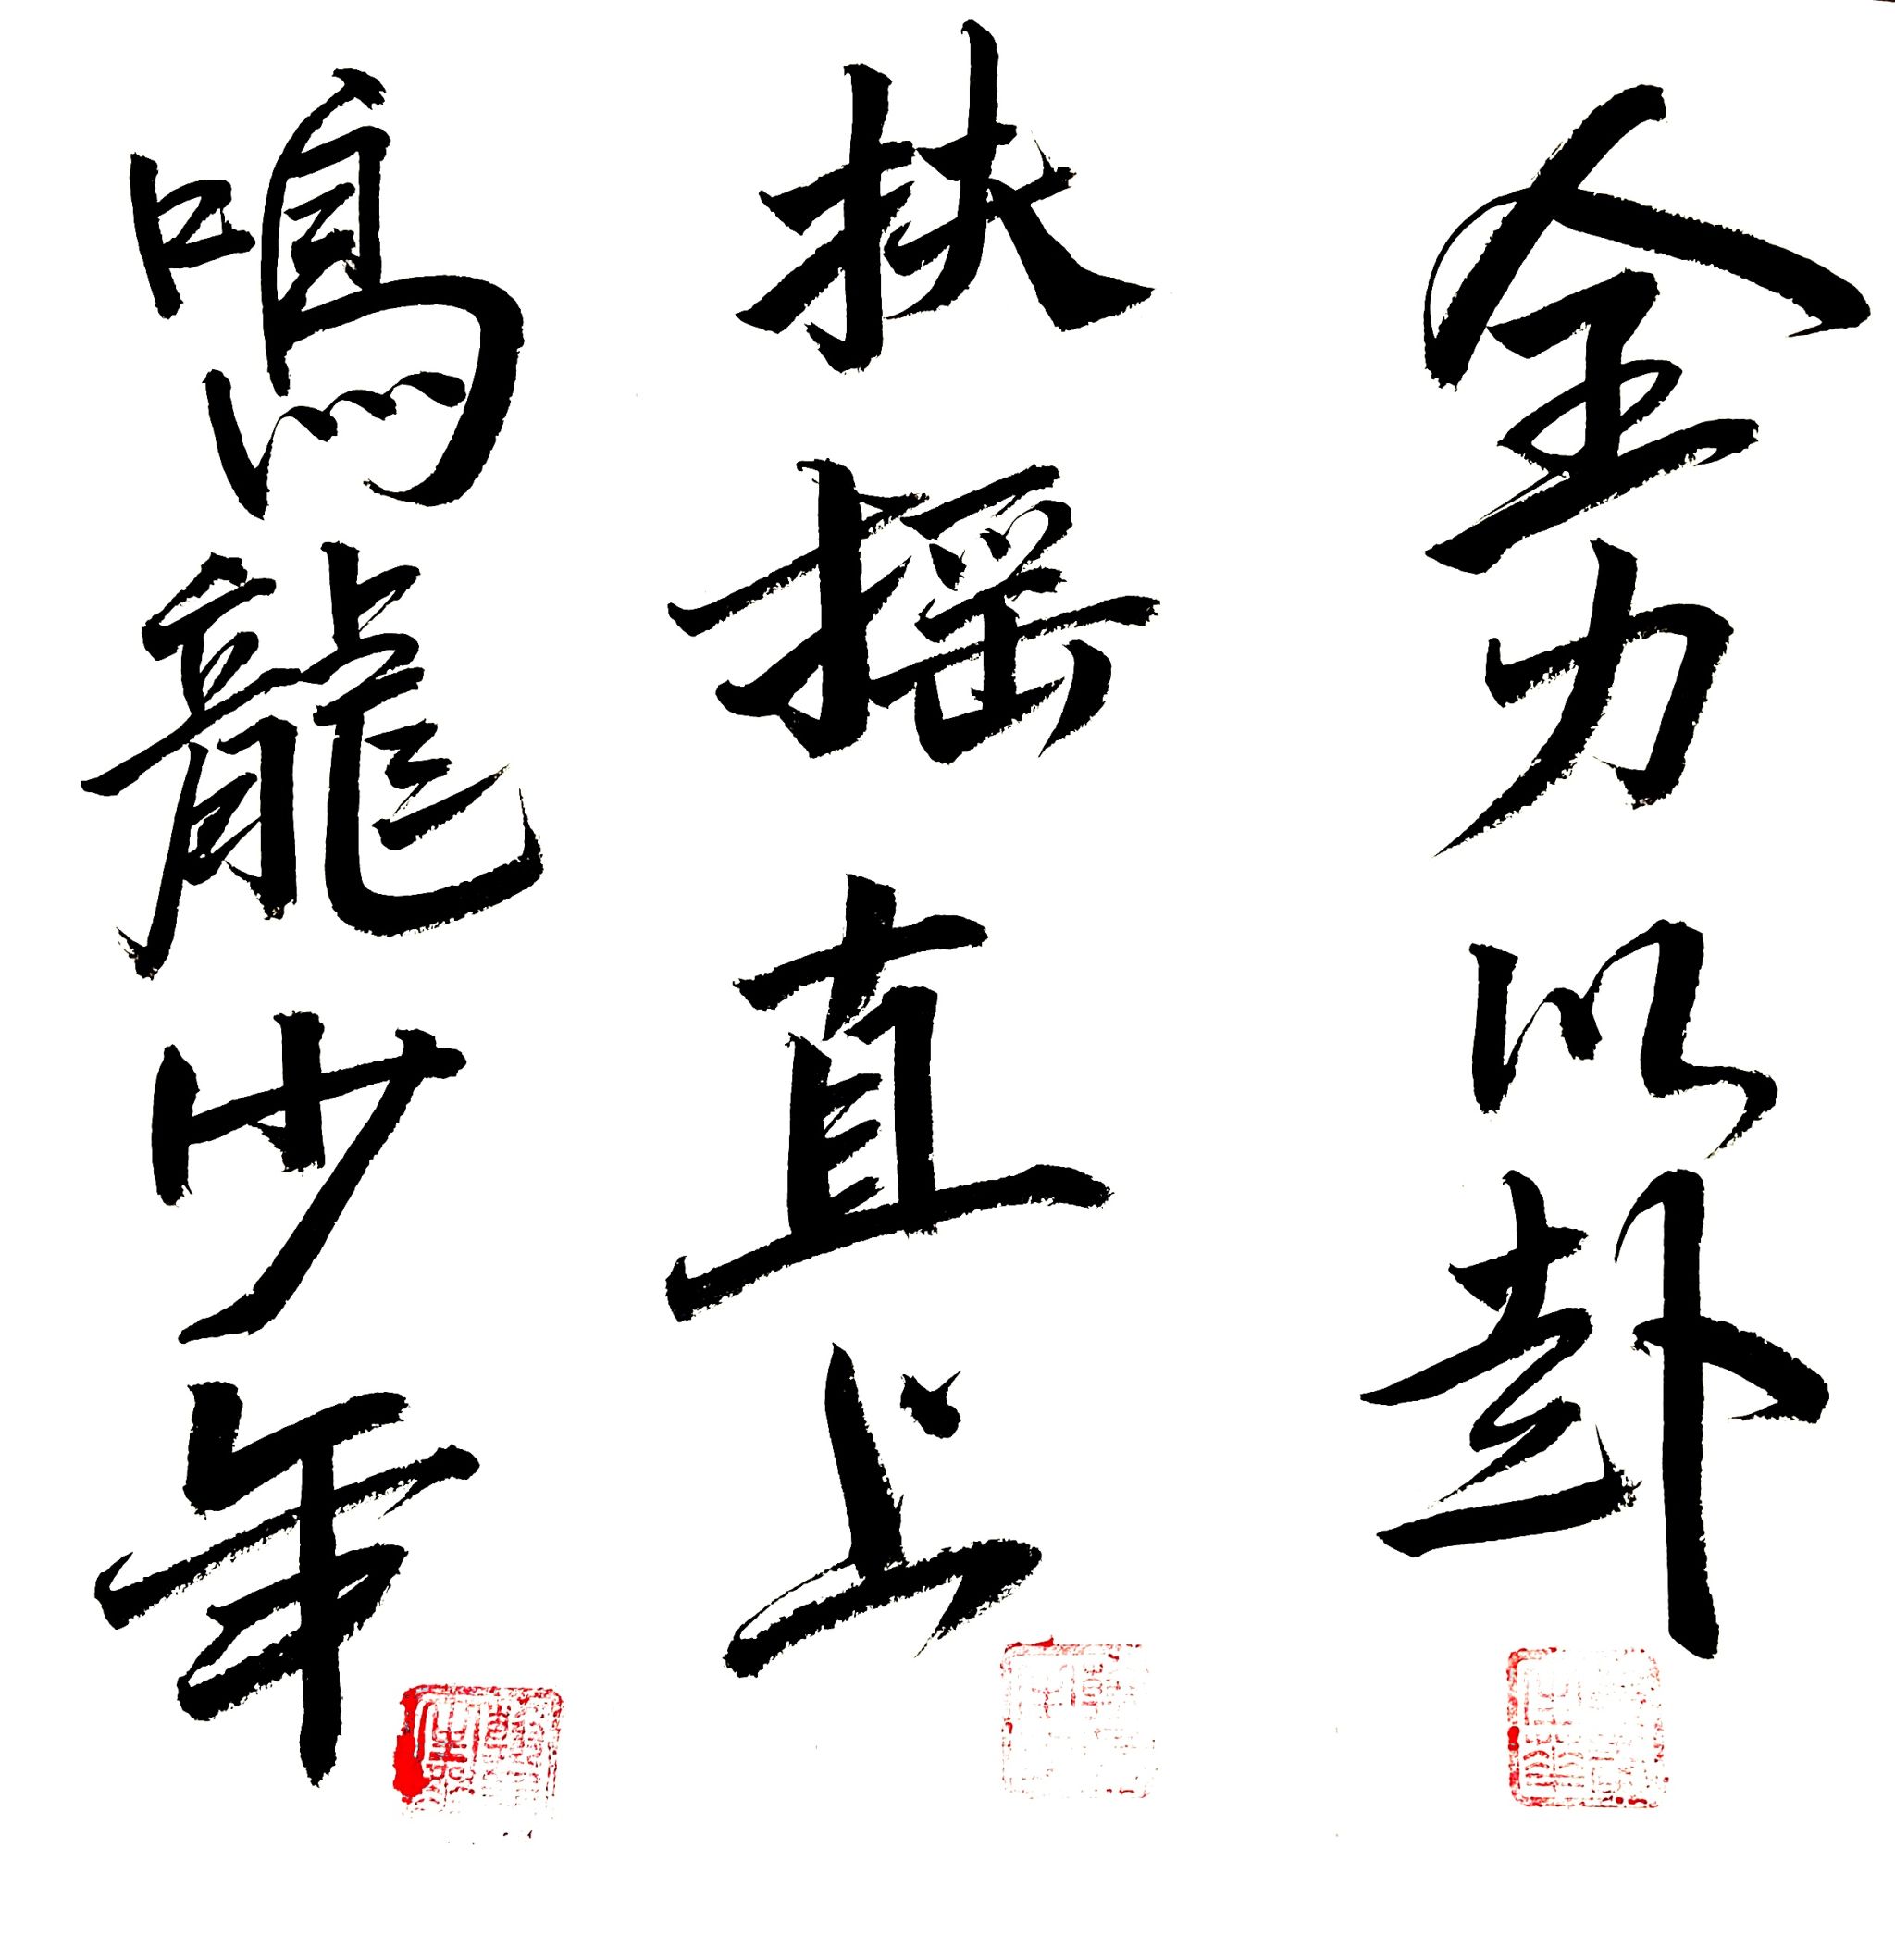 全力以赴
扶摇直上
鳴龍少年